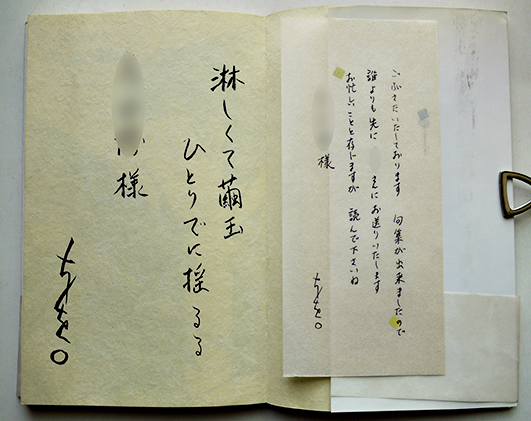 ごぶさたいたしております 句集が出来ましたので
誰よりも先に にお送りいたします
お忙しいことと存じますが 読んで下さいね
様
淋しくて繭玉
ひとりでに揺るる
様